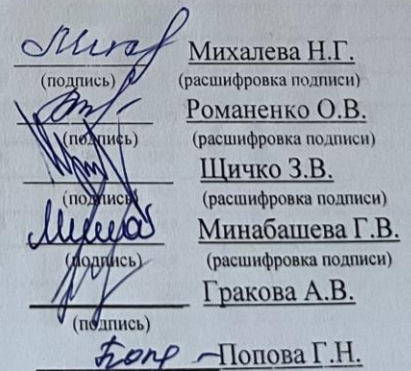 Михалева Н.Г.
(подпись) (расшифровка подписи)
Романенко О.В.
(подпись) (расшифровка подписи)
Щичко З.В.
(подпись) (расшифровка подписи)
Минабашева Г.В.
(подпись) (расшифровка подписи)
Гракова А.В.
(подпись)
Попова Г.Н.